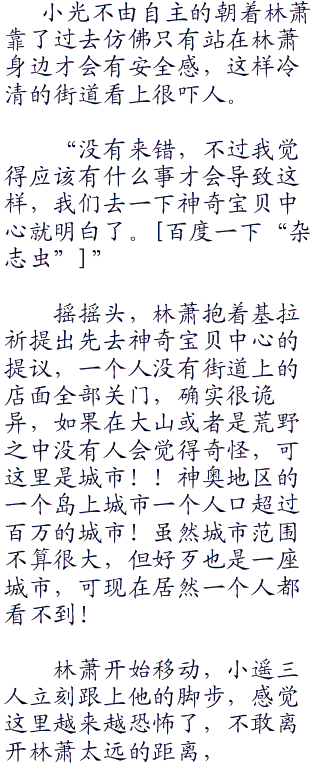 小光不由自主的朝着林萧
靠了过去仿佛只有站在林萧
身边才会有安全感，这样冷
清的街道看上很吓人。
“没有来错，不过我觉
得应该有什么事才会导致这
样，我们去一下神奇宝贝中
心就明白了。[百度一下“杂
志虫”]”
摇摇头，林萧抱着基拉
祈提出先去神奇宝贝中心的
提议，一个人没有街道上的
店面全部关门，确实很诡
异，如果在大山或者是荒野
之中没有人会觉得奇怪，可
这里是城市！！神奥地区的
一个岛上城市一个人口超过
百万的城市！虽然城市范围
不算很大，但好歹也是一座
城市，可现在居然一个人都
看不到！
林萧开始移动，小遥三
人立刻跟上他的脚步，感觉
这里越来越恐怖了，不敢离
开林萧太远的距离，